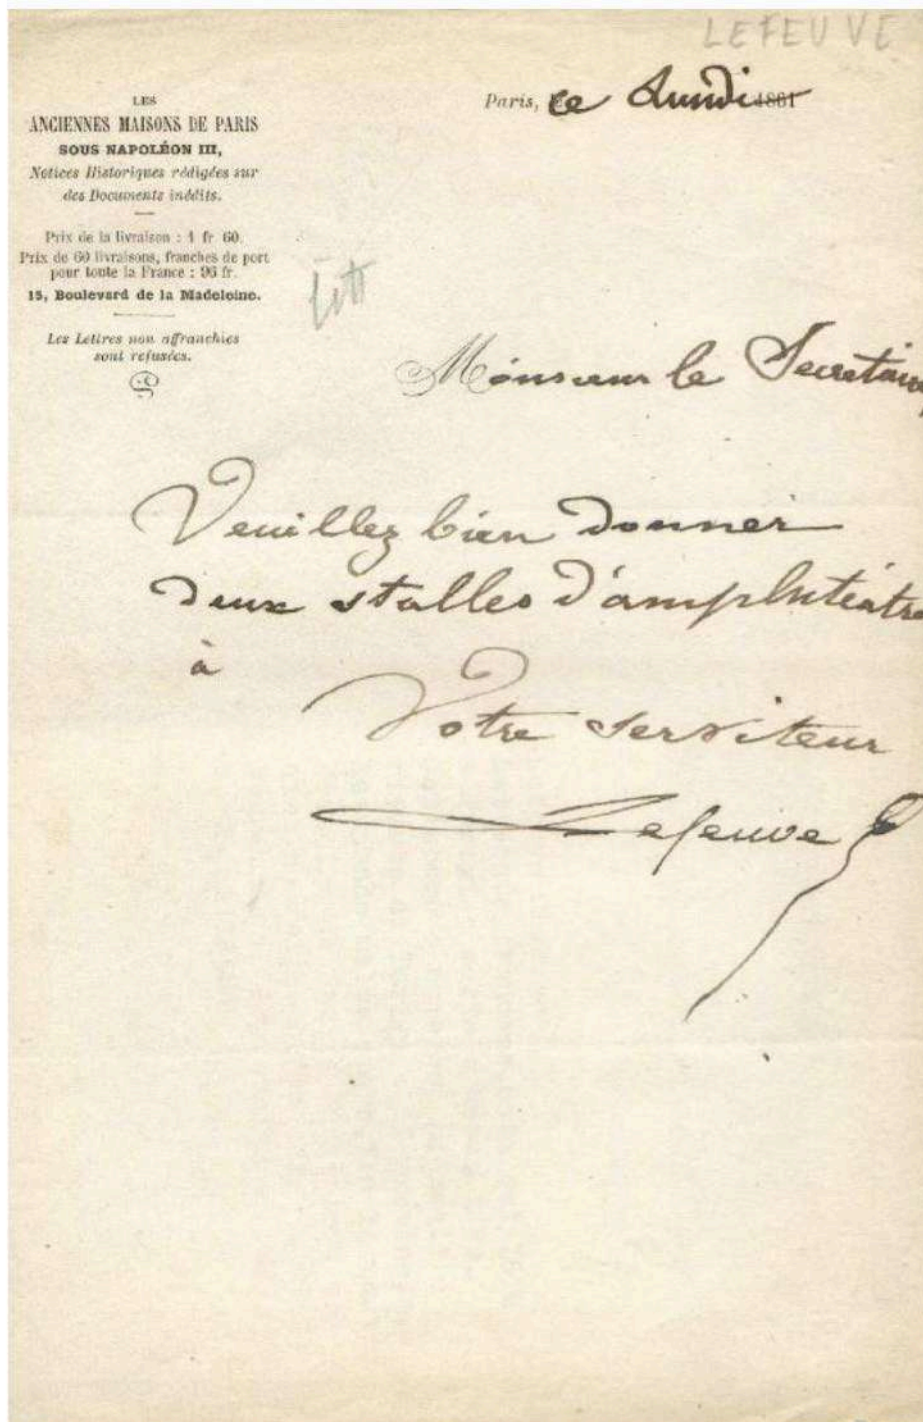 LEFEUVE
LES
ANCIENNES MAISONS DE PARIS
SOUS NAPOLÉON III,
Notices Historiques rédigées sur
des Documents inédits.
Prix de la livraison : 1 fr 60.
Prix de 60 livraisons, franches de port
pour toute la France : 96 fr.
15, Boulevard de la Madeleine.
Les Lettres non affranchies
sont refusées.
Paris, ce Lundi 1861
Monsieur le Secretaire,
Veuillez bien donner
deux stalles d'amphitéatre
à
Votre serviteur
Lefeuve